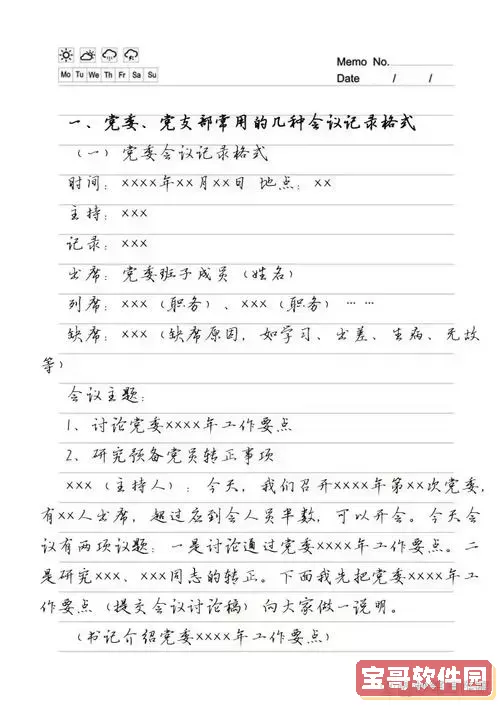 Memo No.
Mo Tu We Th Fr Sa Su
Date / /
一、党委、党支部常用的几种会议记录格式
（一）党委会议记录格式
时间：××××年××月××日 地点：××
主持：×××
记录：×××
出席：党委班子成员（姓名）
列席：×××（职务）、×××（职务）……
缺席：×××（缺席原因，如学习、出差、生病、无故
等）
会议主题：
1、讨论党委××××年工作要点
2、研究预备党员转正事项
×××（主持人）：今天，我们召开××××年第××次党委，
有××人出席，超过应到会人员半数，可以开会。今天会
议有两项议题：一是讨论通过党委××××年工作要点。二
是研究×××、×××同志的转正。下面我先把党委××××年工
作要点（提交会议讨论稿）向大家做一说明。
（书记介绍党委××××年工作要点）
宝哥软件园